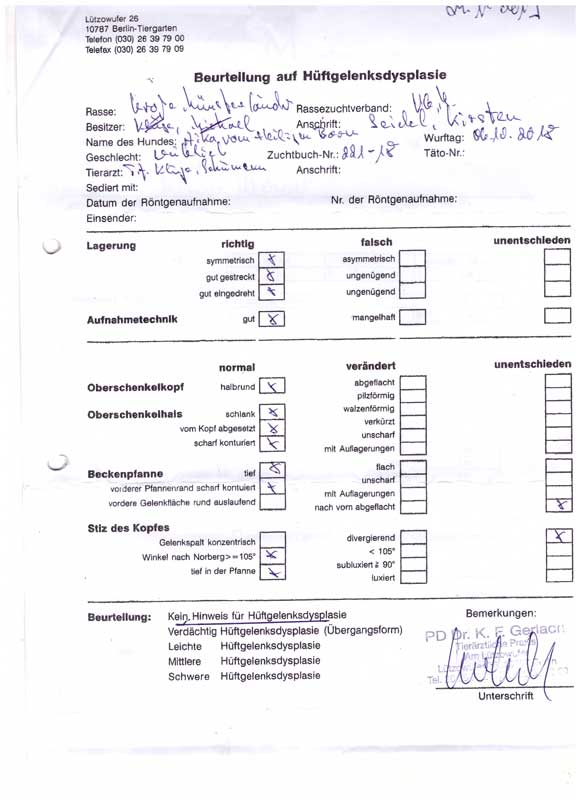 Lützowufer 26
10787 Berlin-Tiergarten
Telefon (030) 26 39 79 00
Telefax (030) 26 39 79 09
Beurteilung auf Hüftgelenksdysplasie
Rasse: Große Münsterländer Rassezuchtverband:
Besitzer: Kluge, Michael Anschrift: Seidel, Kirsten
Name des Hundes: Hika vom Heiligen Born Wurftag: 06.10.2018
Geschlecht: weiblich Zuchtbuch-Nr.: 221-18 Täto-Nr.:
Tierarzt: Schümann Anschrift:
Sediert mit:
Datum der Röntgenaufnahme: Nr. der Röntgenaufnahme:
Einsender:
Lagerung richtig falsch unentschieden
symmetrisch x asymmetrisch
gut gestreckt x ungenügend
gut eingedreht x ungenügend
Aufnahmetechnik gut x mangelhaft
normal verändert unentschieden
Oberschenkelkopf halbrund x abgeflacht
pilzförmig
Oberschenkelhals schlank x walzenförmig
verkürzt
vom Kopf abgesetzt x unscharf
scharf konturiert x mit Auflagerungen
Beckenpfanne tief x flach
unscharf
vorderer Pfannenrand scharf kontuiert x mit Auflagerungen
vordere Gelenkfläche rund auslaufend nach vorn abgeflacht x
Stiz des Kopfes
Gelenkspalt konzentrisch divergierend x
Winkel nach Norberg>=105° x < 105°
subluxiert ≥ 90°
tief in der Pfanne x luxiert
Beurteilung: Kein Hinweis für Hüftgelenksdysplasie Bemerkungen:
Verdächtig Hüftgelenksdysplasie (Übergangsform)
Leichte Hüftgelenksdysplasie
Mittlere Hüftgelenksdysplasie
Schwere Hüftgelenksdysplasie
PD Dr. K. F. Gerlach
Tierärztliche Praxis
Am Lützowufer
Unterschrift